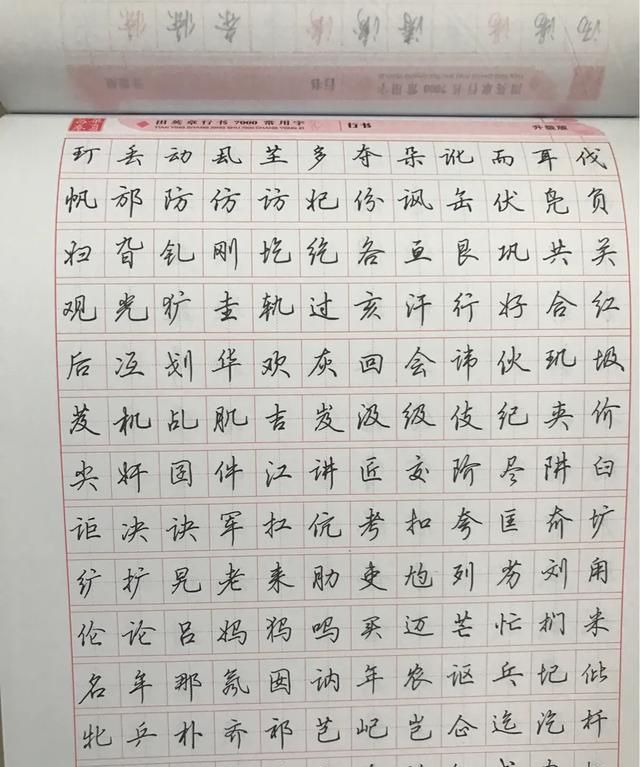 田英章行书7000常用字 行书 升级版
玎丢动虱芏多夺朵讹而耳伐
帆邡防仿访妃份讽缶伏凫负
妇旮钆刚圪纥各亘艮巩共关
观光犷圭轨过亥汗行好合红
后冱划华欢灰回会讳伙玑圾
芨机乩肌吉岌汲级伎纪夹价
尖奸囝件江讲匠交阶尽阱臼
讵决诀军扛伉考扣夸匡夼圹
纩扩旯老耒肋吏尥列劣刘甪
伦论吕妈犸吗买迈芒忙扪米
名牟那氖囡讷年农讴乓圮仳
牝乒朴齐祁芑屺岂企迄汔扦